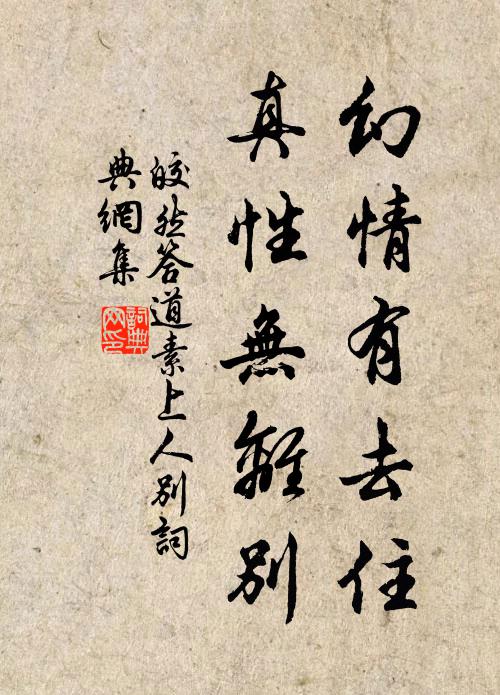 幻情有去住
真性無離別
皎然答道素上人別詞
典網集
詞典
网印